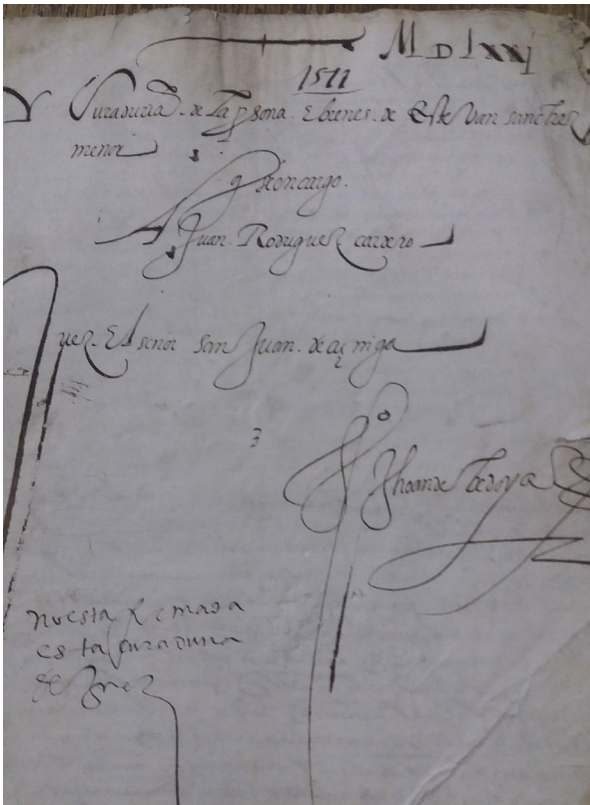 MDLXXI
1571
Curaduria de la psona e bienes de Estevan sanchez
menor
q desoncargo.
A Juan Rodriguez cardero
uez El señor san Juan de çuñiga
3
Jhoan de Bedoya
no esta firmada
esta curaduria
de Juez